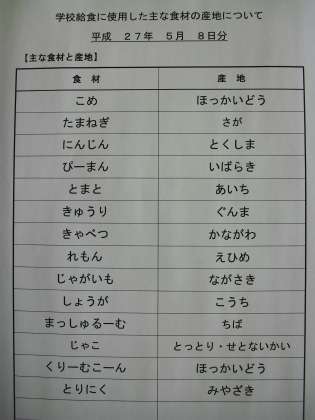 学校給食に使用した主な食材の産地について
平成 27年 5月 8日分
【主な食材と産地】
食材 産地
こめ ほっかいどう
たまねぎ さが
にんじん とくしま
ぴーまん いばらき
とまと あいち
きゅうり ぐんま
きゃべつ かながわ
れもん えひめ
じゃがいも ながさき
しょうが こうち
まっしゅるーむ ちば
じゃこ とっとり・せとないかい
くりーむこーん ほっかいどう
とりにく みやざき